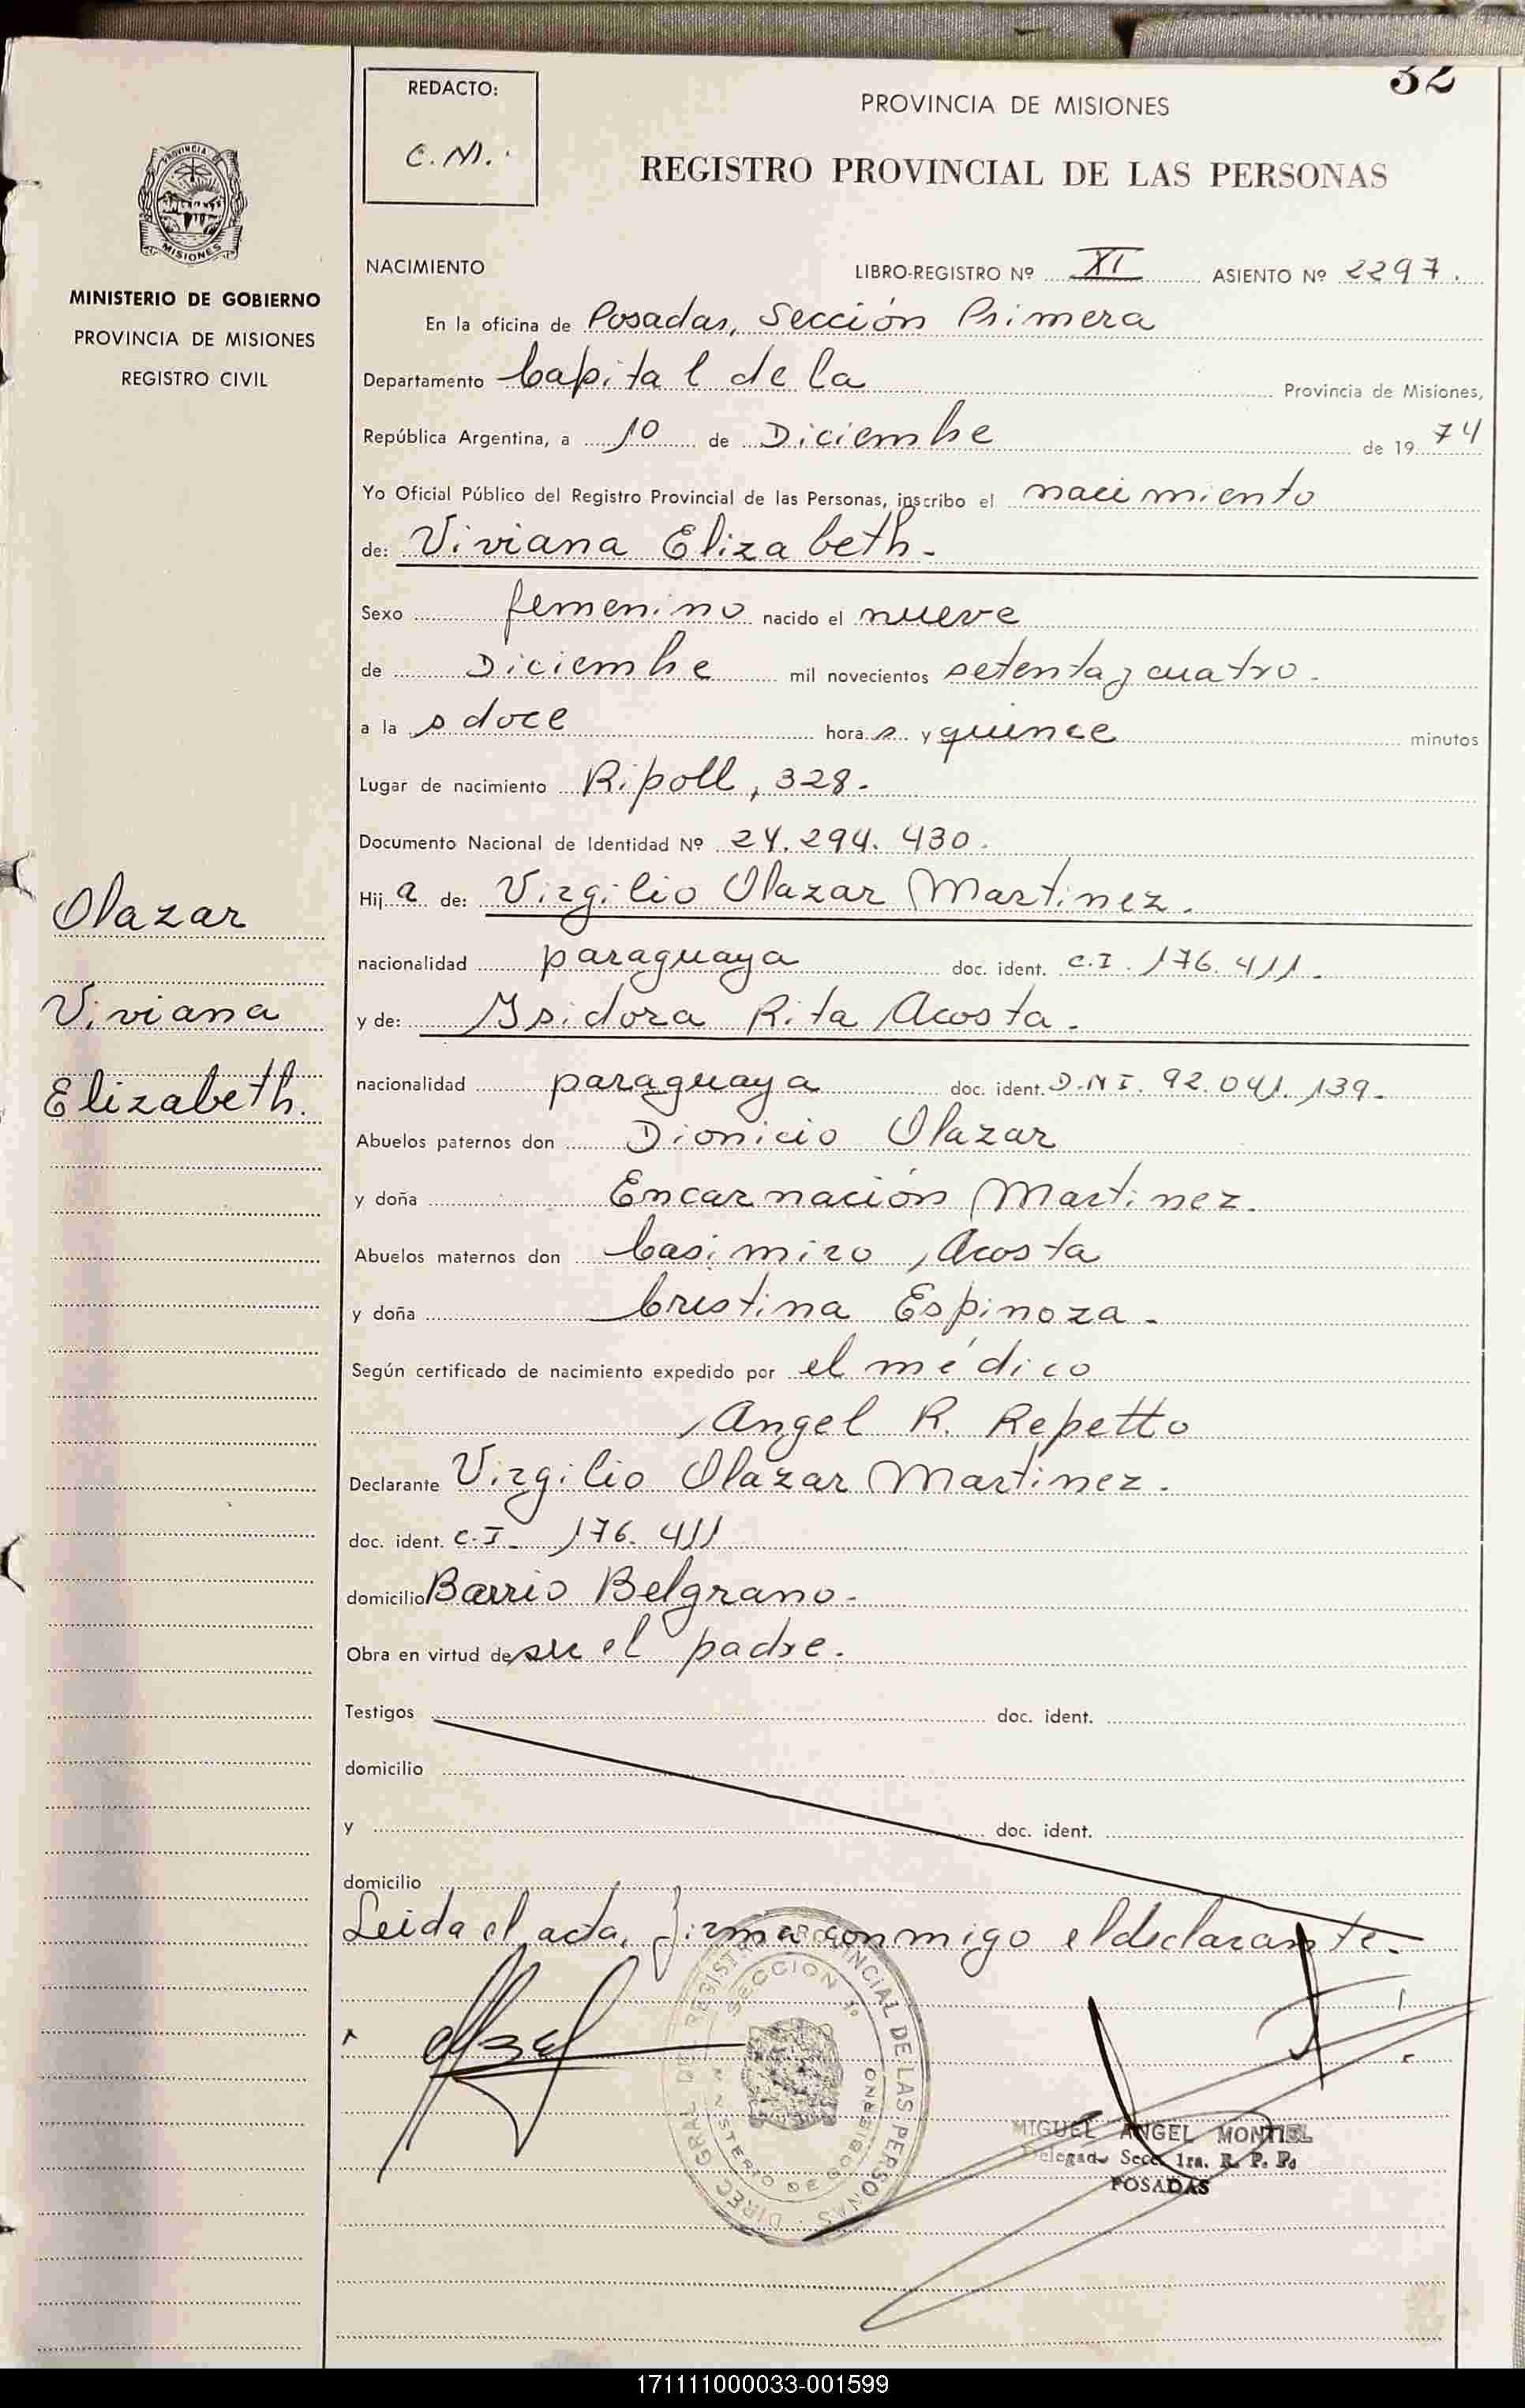 32
REDACTO:
C. M.
PROVINCIA DE MISIONES
REGISTRO PROVINCIAL DE LAS PERSONAS
PROVINCIA DE
MISIONES
MINISTERIO DE GOBIERNO
PROVINCIA DE MISIONES
REGISTRO CIVIL
NACIMIENTO
LIBRO-REGISTRO Nº XI ASIENTO Nº 2297.
En la oficina de Posadas, Sección Primera
Departamento Capital de la Provincia de Misiones,
República Argentina, a 10 de Diciembre de 19 74
Yo Oficial Público del Registro Provincial de las Personas, inscribo el nacimiento
de: Viviana Elizabeth.
Sexo femenino nacido el nueve
de Diciembre mil novecientos setenta y cuatro.
a la s doce hora s y quince minutos
Lugar de nacimiento Ripoll, 328.
Documento Nacional de Identidad Nº 24.294.430.
Hij a de: Virgilio Olazar Martinez.
nacionalidad paraguaya doc. ident. C.I. 176.411.
y de: Isidora Rita Acosta.
nacionalidad paraguaya doc. ident. D.N.I. 92.041.139.
Abuelos paternos don Dionicio Olazar
y doña Encarnación Martinez.
Abuelos maternos don Casimiro Acosta
y doña Cristina Espinoza.
Según certificado de nacimiento expedido por el médico
Angel R. Repetto
Declarante Virgilio Olazar Martinez.
doc. ident. C.I. 176.411
domicilio Barrio Belgrano.
Obra en virtud de su el padre.
Testigos doc. ident.
domicilio
y doc. ident.
domicilio
Leida el acta, firma conmigo el declarante.
Olazar
Viviana
Elizabeth.
DIREC. GRAL. DEL REGISTRO PROVINCIAL DE LAS PERSONAS
SECCION 1º
MINISTERIO DE GOBIERNO
MIGUEL ANGEL MONTIEL
Delegado Secc. 1ra. R. P. P.
POSADAS
171111000033-001599